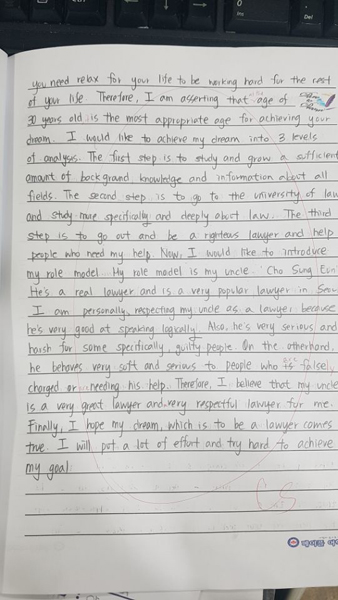 you need relax for your life to be working hard for the rest
of your life. Therefore, I am asserting that age of
30 years old is the most appropriate age for achieving your
dream. I would like to achieve my dream into 3 levels
of analysis. The first step is to study and grow a sufficient
amount of background knowledge and information about all
fields. The second step is to go to the university of law
and study more specifically and deeply about law. The third
step is to go out and be a righteous lawyer and help
people who need my help. Now, I would like to introduce
my role model. My role model is my uncle. 'Cho Sung Eun'
He's a real lawyer and is a very popular lawyer in Seou
I am personally, respecting my uncle as a lawyer because
he's very good at speaking logically. Also, he's very serious and
harsh for some specifically, guilty people. On the otherhand,
he behaves very soft and serious to people who is falsel
charged or needing his help. Therefore, I believe that my uncle
is a very great lawyer and very respectful lawyer for me.
Finally, I hope my dream, which is to be a lawyer comes
true. I will put a lot of effort and try hard to achieve
my goal.